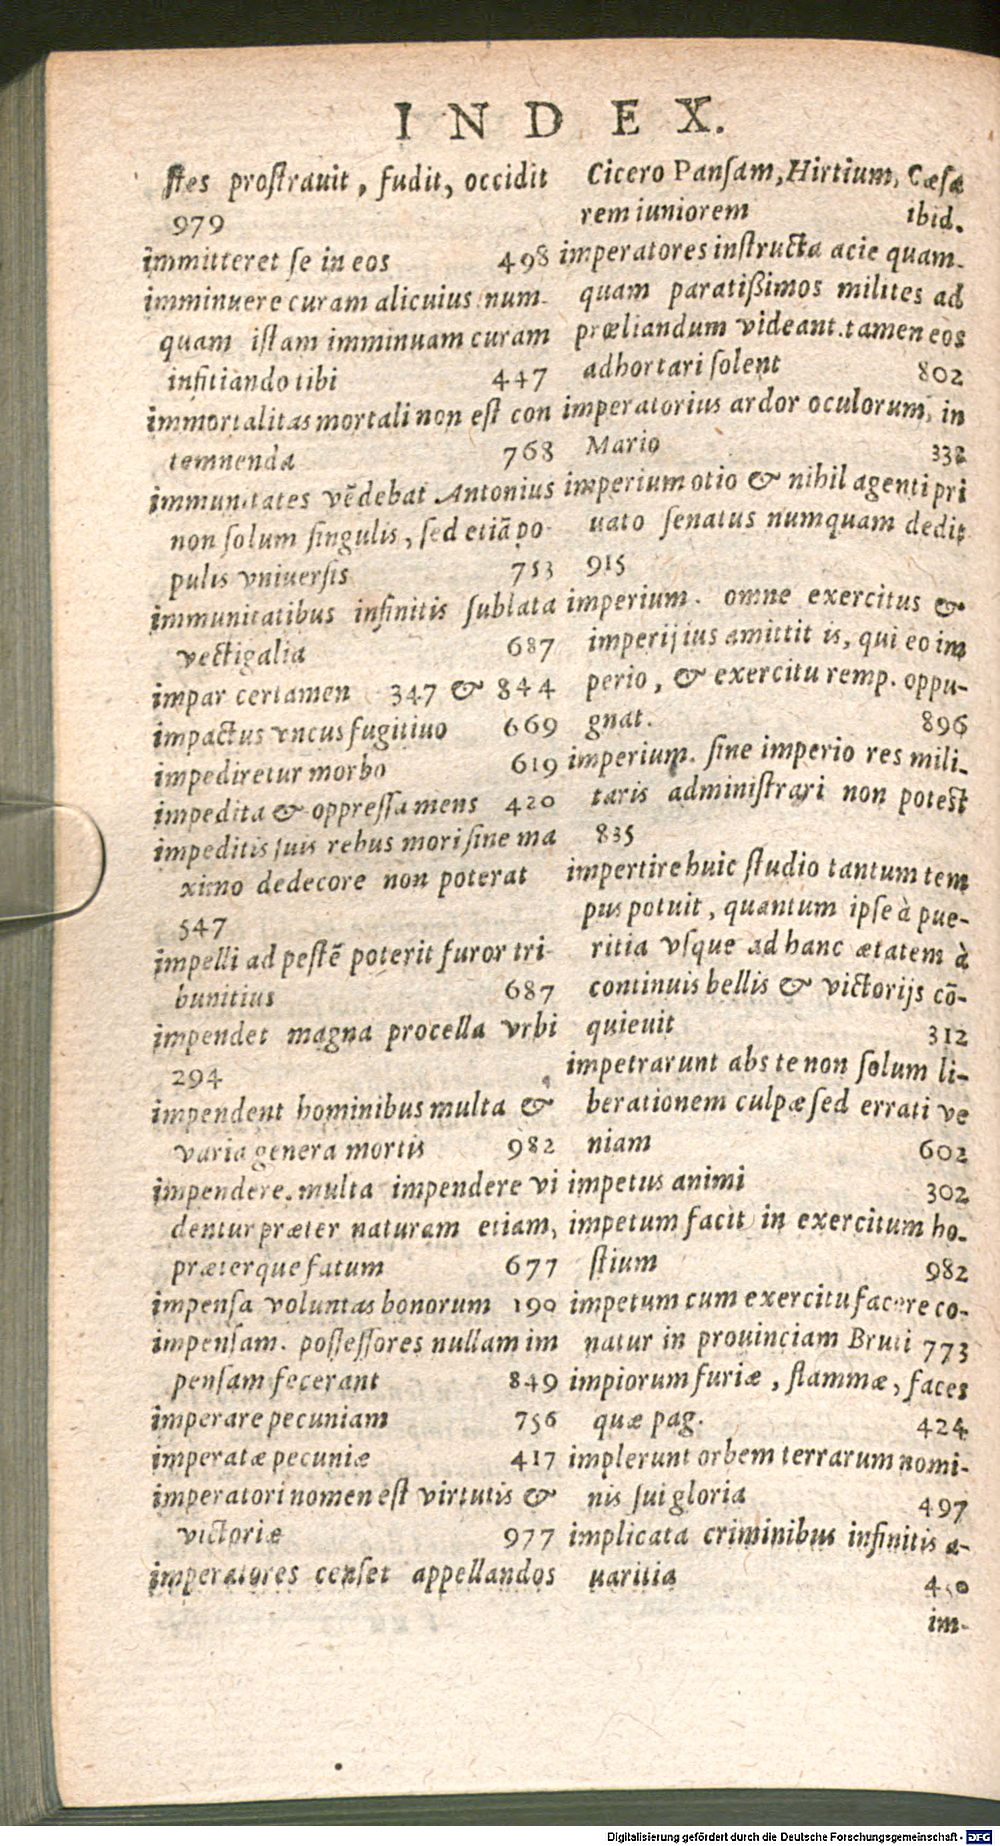 INDEX.
ſtes proſtrauit, fudit, occidit
979
immitteret ſe in eos 498
imminuere curam alicuius num-
quam iſtam imminuam curam
infitiando tibi 447
immortalitas mortali non eſt con
temnenda 768
immunitates vēdebat Antonius
non ſolum ſingulis, ſed etiā po-
pulis vniuerſis 753
immunitatibus infinitis ſublata
vectigalia 687
impar certamen 347 & 844
impactus vncus fugitiuo 669
impediretur morbo 619
impedita & oppreſſa mens 420
impeditis ſuis rebus mori ſine ma
ximo dedecore non poterat
547
impelli ad peſtē poterit furor tri-
bunitius 687
impendet magna procella vrbi
294
impendent hominibus multa &
varia genera mortis 982
impendere. multa impendere vi
dentur præter naturam etiam,
præterque fatum 677
impenſa voluntas bonorum 190
impenſam. poſſeſſores nullam im
penſam fecerant 849
imperare pecuniam 756
imperatæ pecuniæ 417
imperatori nomen eſt virtutis &
victoriæ 977
imperatores cenſet appellandos
Cicero Panſam, Hirtium, Cæſa
rem iuniorem ibid.
imperatores inſtructa acie quam-
quam paratißimos milites ad
præliandum videant. tamen eos
adhortari ſolent 802
imperatorius ardor oculorum, in
Mario 332
imperium otio & nihil agenti pri
uato ſenatus numquam dedit
915
imperium. omne exercitus &
imperij ius amittit is, qui eo im
perio, & exercitu remp. oppu-
gnat. 896
imperium. ſine imperio res mili-
taris adminiſtrari non poteſt
835
impertire huic ſtudio tantum tem
pus potuit, quantum ipſe à pue-
ritia vſque ad hanc ætatem à
continuis bellis & victorijs cō-
quieuit 312
impetrarunt abs te non ſolum li-
berationem culpæ ſed errati ve
niam 602
impetus animi 302
impetum facit in exercitum ho-
ſtium 982
impetum cum exercitu facere co-
natur in prouinciam Bruti 773
impiorum furiæ, flammæ, faces
quæ pag. 424
implerunt orbem terrarum nomi-
nis ſui gloria 497
implicata criminibus infinitis a-
uaritia
im-
Digitalisierung gefördert durch die Deutsche Forschungsgemeinschaft - DFG